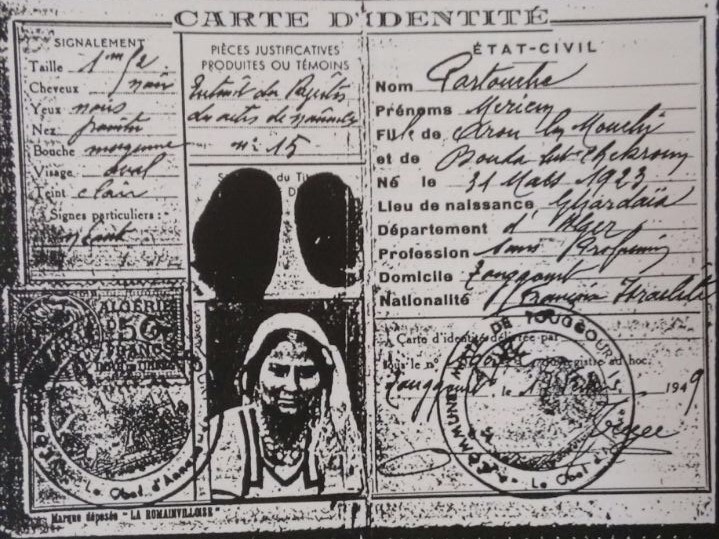 CARTE D'IDENTITÉ
SIGNALEMENT
Taille 1m62
Cheveux noir
Yeux noirs
Nez
Bouche moyenne
Visage oval
Teint clair
Signes particuliers :
néant
PIÈCES JUSTIFICATIVES
PRODUITES OU TÉMOINS
Extrait des Registres
des actes de naissance
n° 15
du Tit
ALGÉRIE
50
FRANCS
Le Chef d'Annexe
Marque déposée "LA ROMAINVILLOISE"
ÉTAT-CIVIL
Nom Partouche
Prénoms Meriem
Fille de Aron ben Mouchi
et de Bent Chekroun
Né le 31 Mars 1923
Lieu de naissance Ghardaïa
Département d'Alger
Profession Sans Profession
Domicile Touggourt
Nationalité Française Israelite
Carte d'identité délivrée par
sous le n° du registre ad hoc.
Touggourt, le 1949
COMMUNE MIXTE DE TOUGGOURT
Le Chef d'Annexe